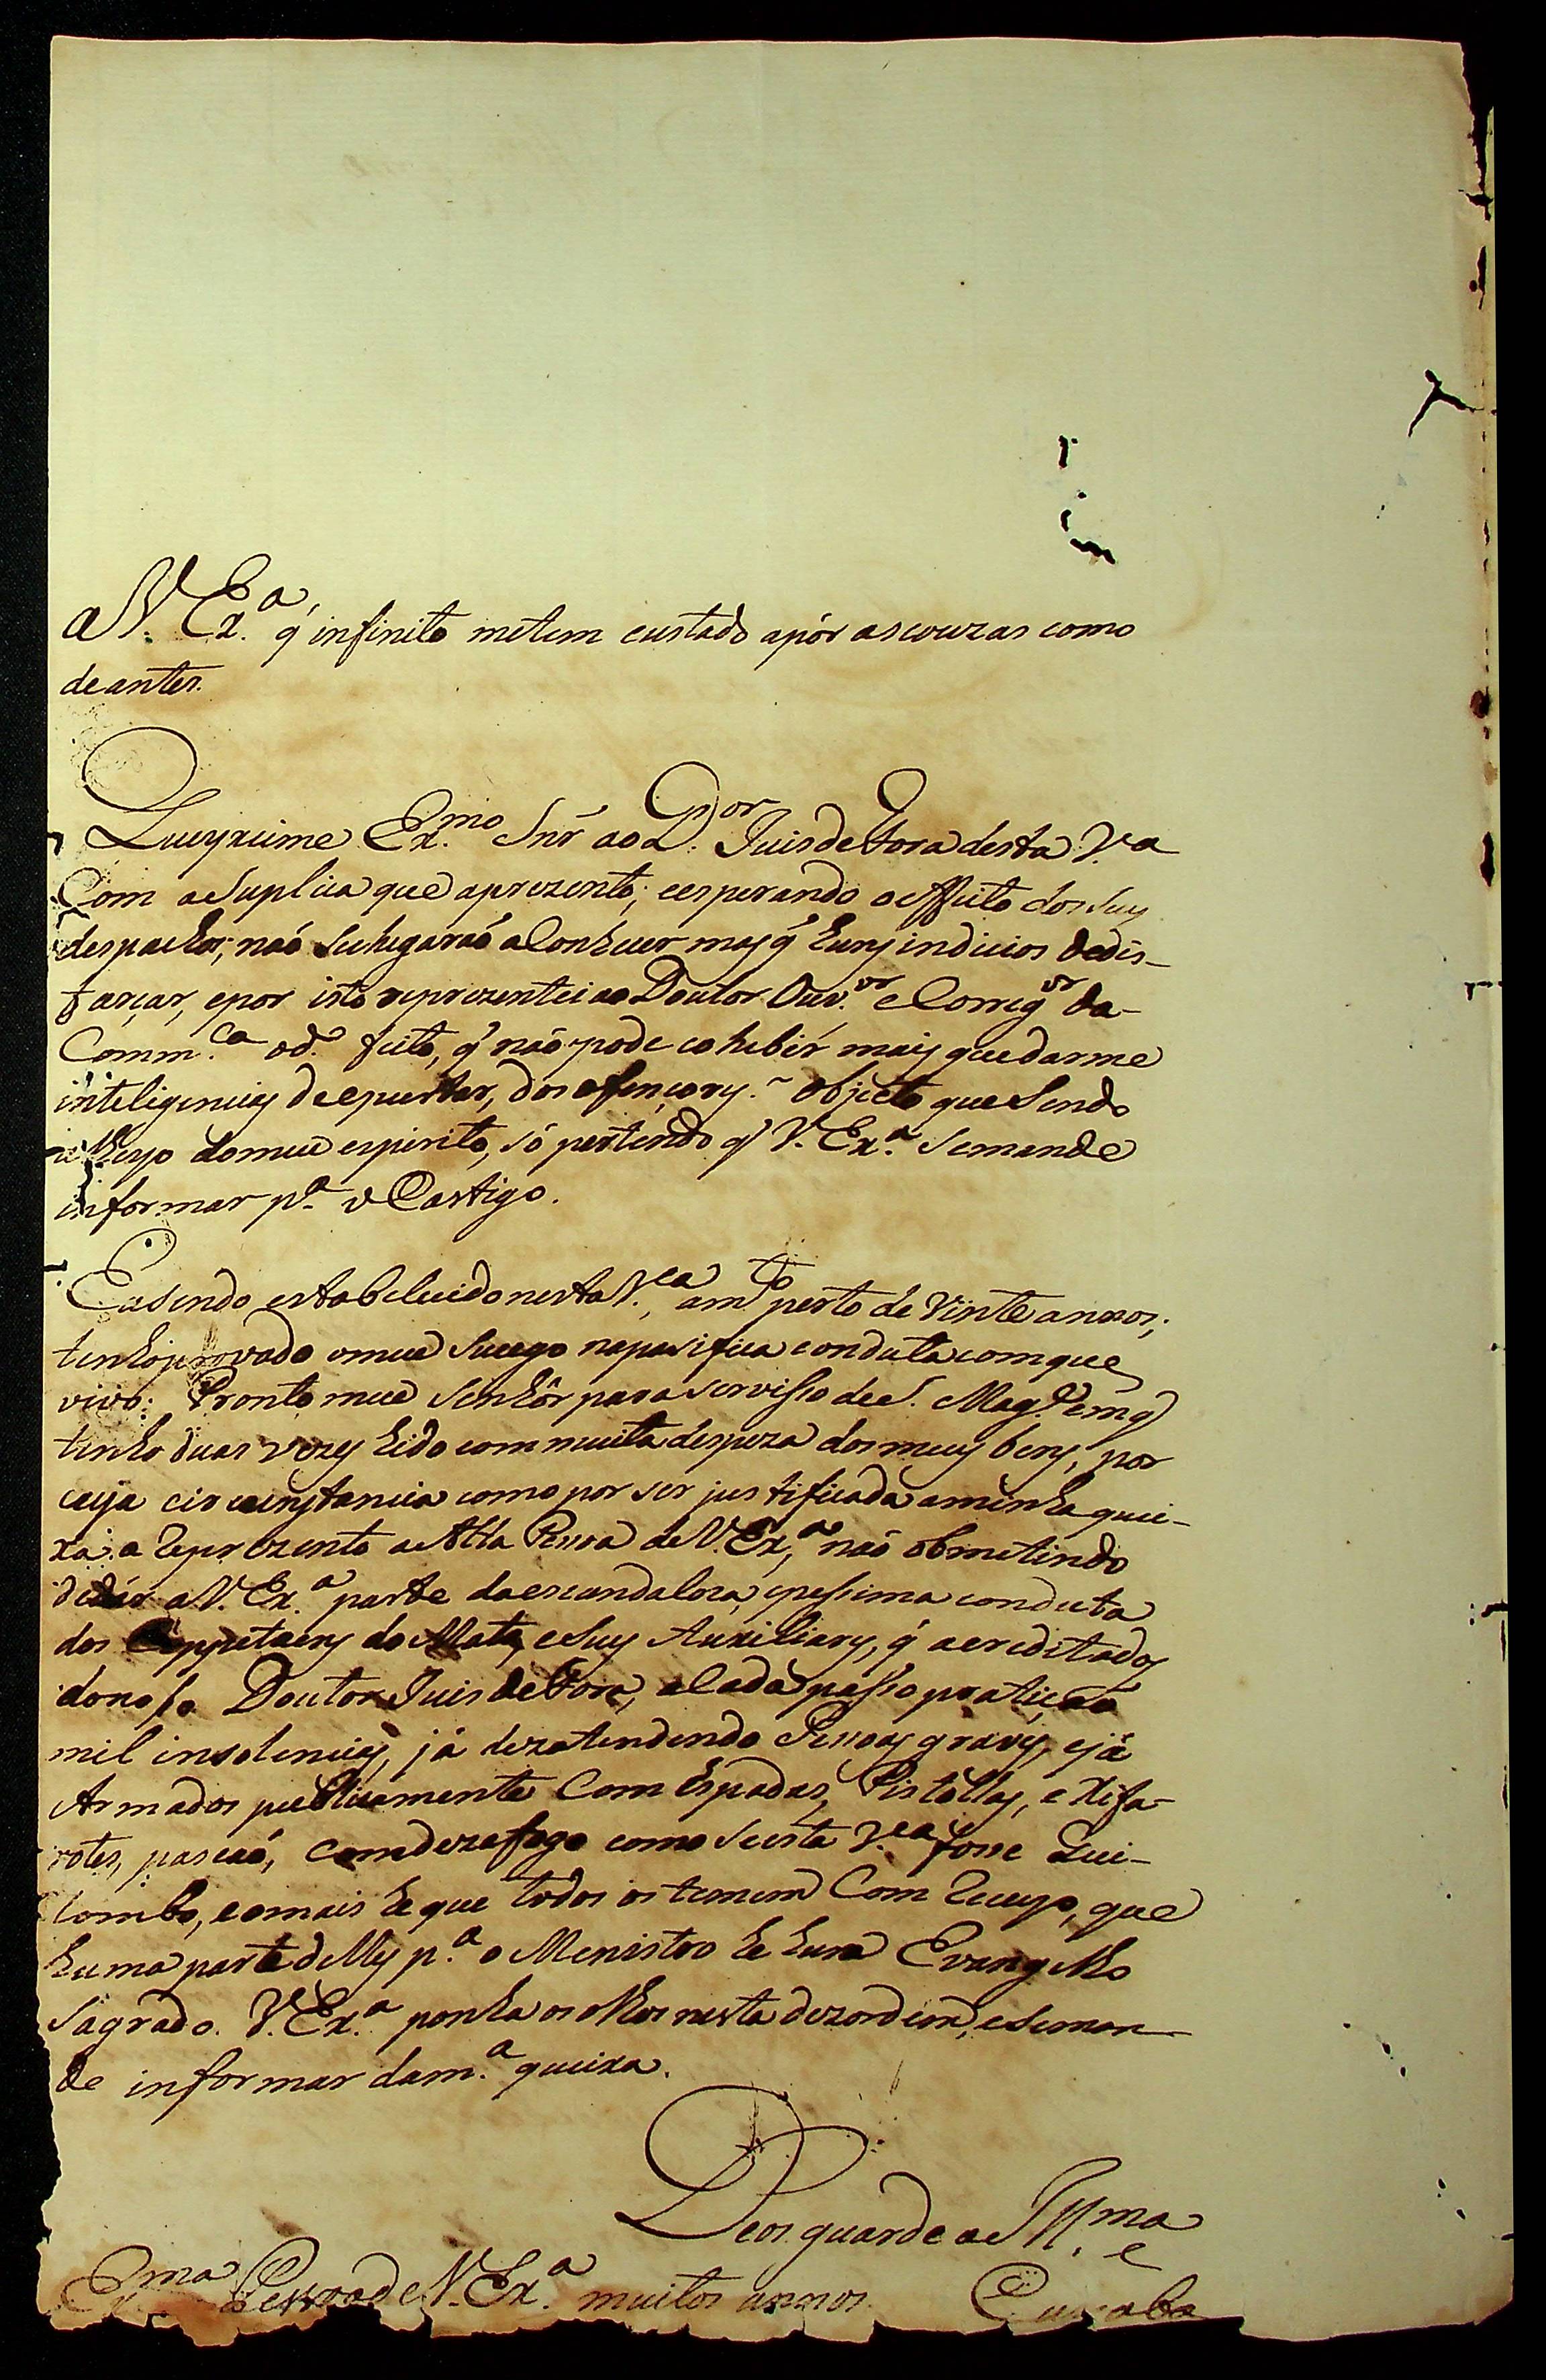 a V. Ex.ª q' infinito metem custado apôr ascouzas como
deantes.
Queyxeime Ex.mo Snr' ao D.or Juis de Fora desta V.ª
Com aSuplica que aprezento; eesperando oeffeito dos Suy
despachos; naõ Sechegaraõ aConhecer mays q' huns indicios dedis-
farçar, epor isto reprezentei ao Doutor Ouv.or eCorreg.or da-
Comm.ca od.º feito, q' naõ pode cohebir mais quedarme
inteligencias de , dos ofençores. Objecto que Sendo
domeu espirito, só pertendo q' V. Ex.ª Semande
informar p.ª o Castigo.
Eu sendo estabelecido nesta V.ª am.to perto de Vinte annos,
tenho provado omeu Sucego napasifica conduta comque
vivo: Pronto meu Senhôr para servisso de S. Mag.e emq'
tenho duas vezes hido com muita despeza dosmeus bens, por
cuja circunstancia como por ser justificada aminha quei-
xa: a Reprezento a Alta Pessoa de V. Ex.ª, naõ obmetindo
dedár a V. Ex.ª parte daescandaloza, epessima conducta
dos Cappitaens do Mato, eSuy Auxiliares, q' acreditados
donosso Doutor Juis de Fora, aCada passo praticaõ
mil insolencias, já dezatendendo Pessoas graves, ejá
Armados publicamente Com Espadas, Pistollas, e Xifa-
rotes, paseaõ, comdezafogo como Seesta V.ª fosse Qui-
lombo, eomais he que todos os temem Com Receyo, que
huma parte delles p.ª o Menistro he hum Evangelho
Sagrado. V. Ex.ª ponha os olhos nesta dezordem, eSeman-
de informar dam.ª queixa.
Deos guarde a Ill.ma e
Ex.ma Pessoa de V. Ex.ª muitos annos.